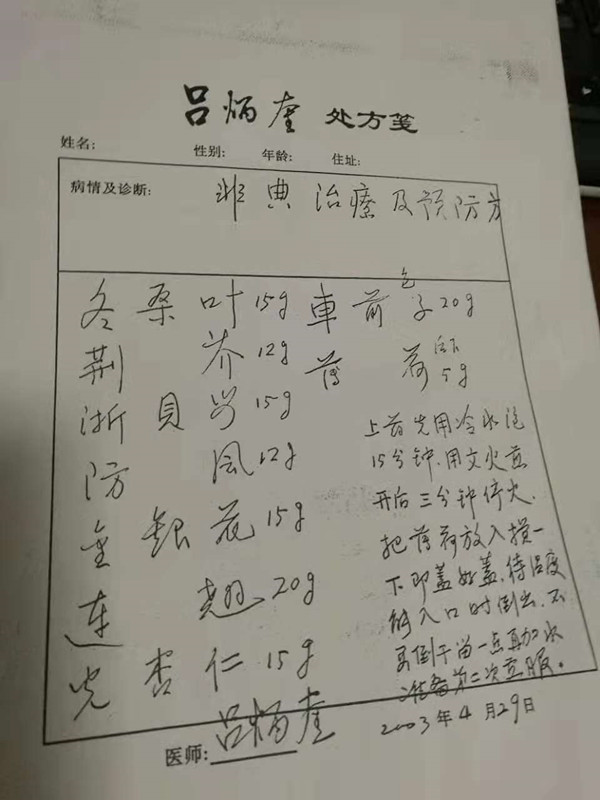 吕炳奎 处方笺
姓名: 性别: 年龄: 住址:
病情及诊断: 非典治療及预防方
冬桑叶15g
荆芥12g
浙貝母15g
防風12g
金銀花15g
連翘20g
光杏仁15g
車前子20g 包
薄荷5g 后下
上药先用冷水泡
15分钟.用文火煎
开后三分钟停火.
把薄荷放入搅一
下即盖好盖.待温度
能入口时倒出.不
要倒干留一点再加水
准备第二次煎服。
医师: 吕炳奎
2003年4月29日